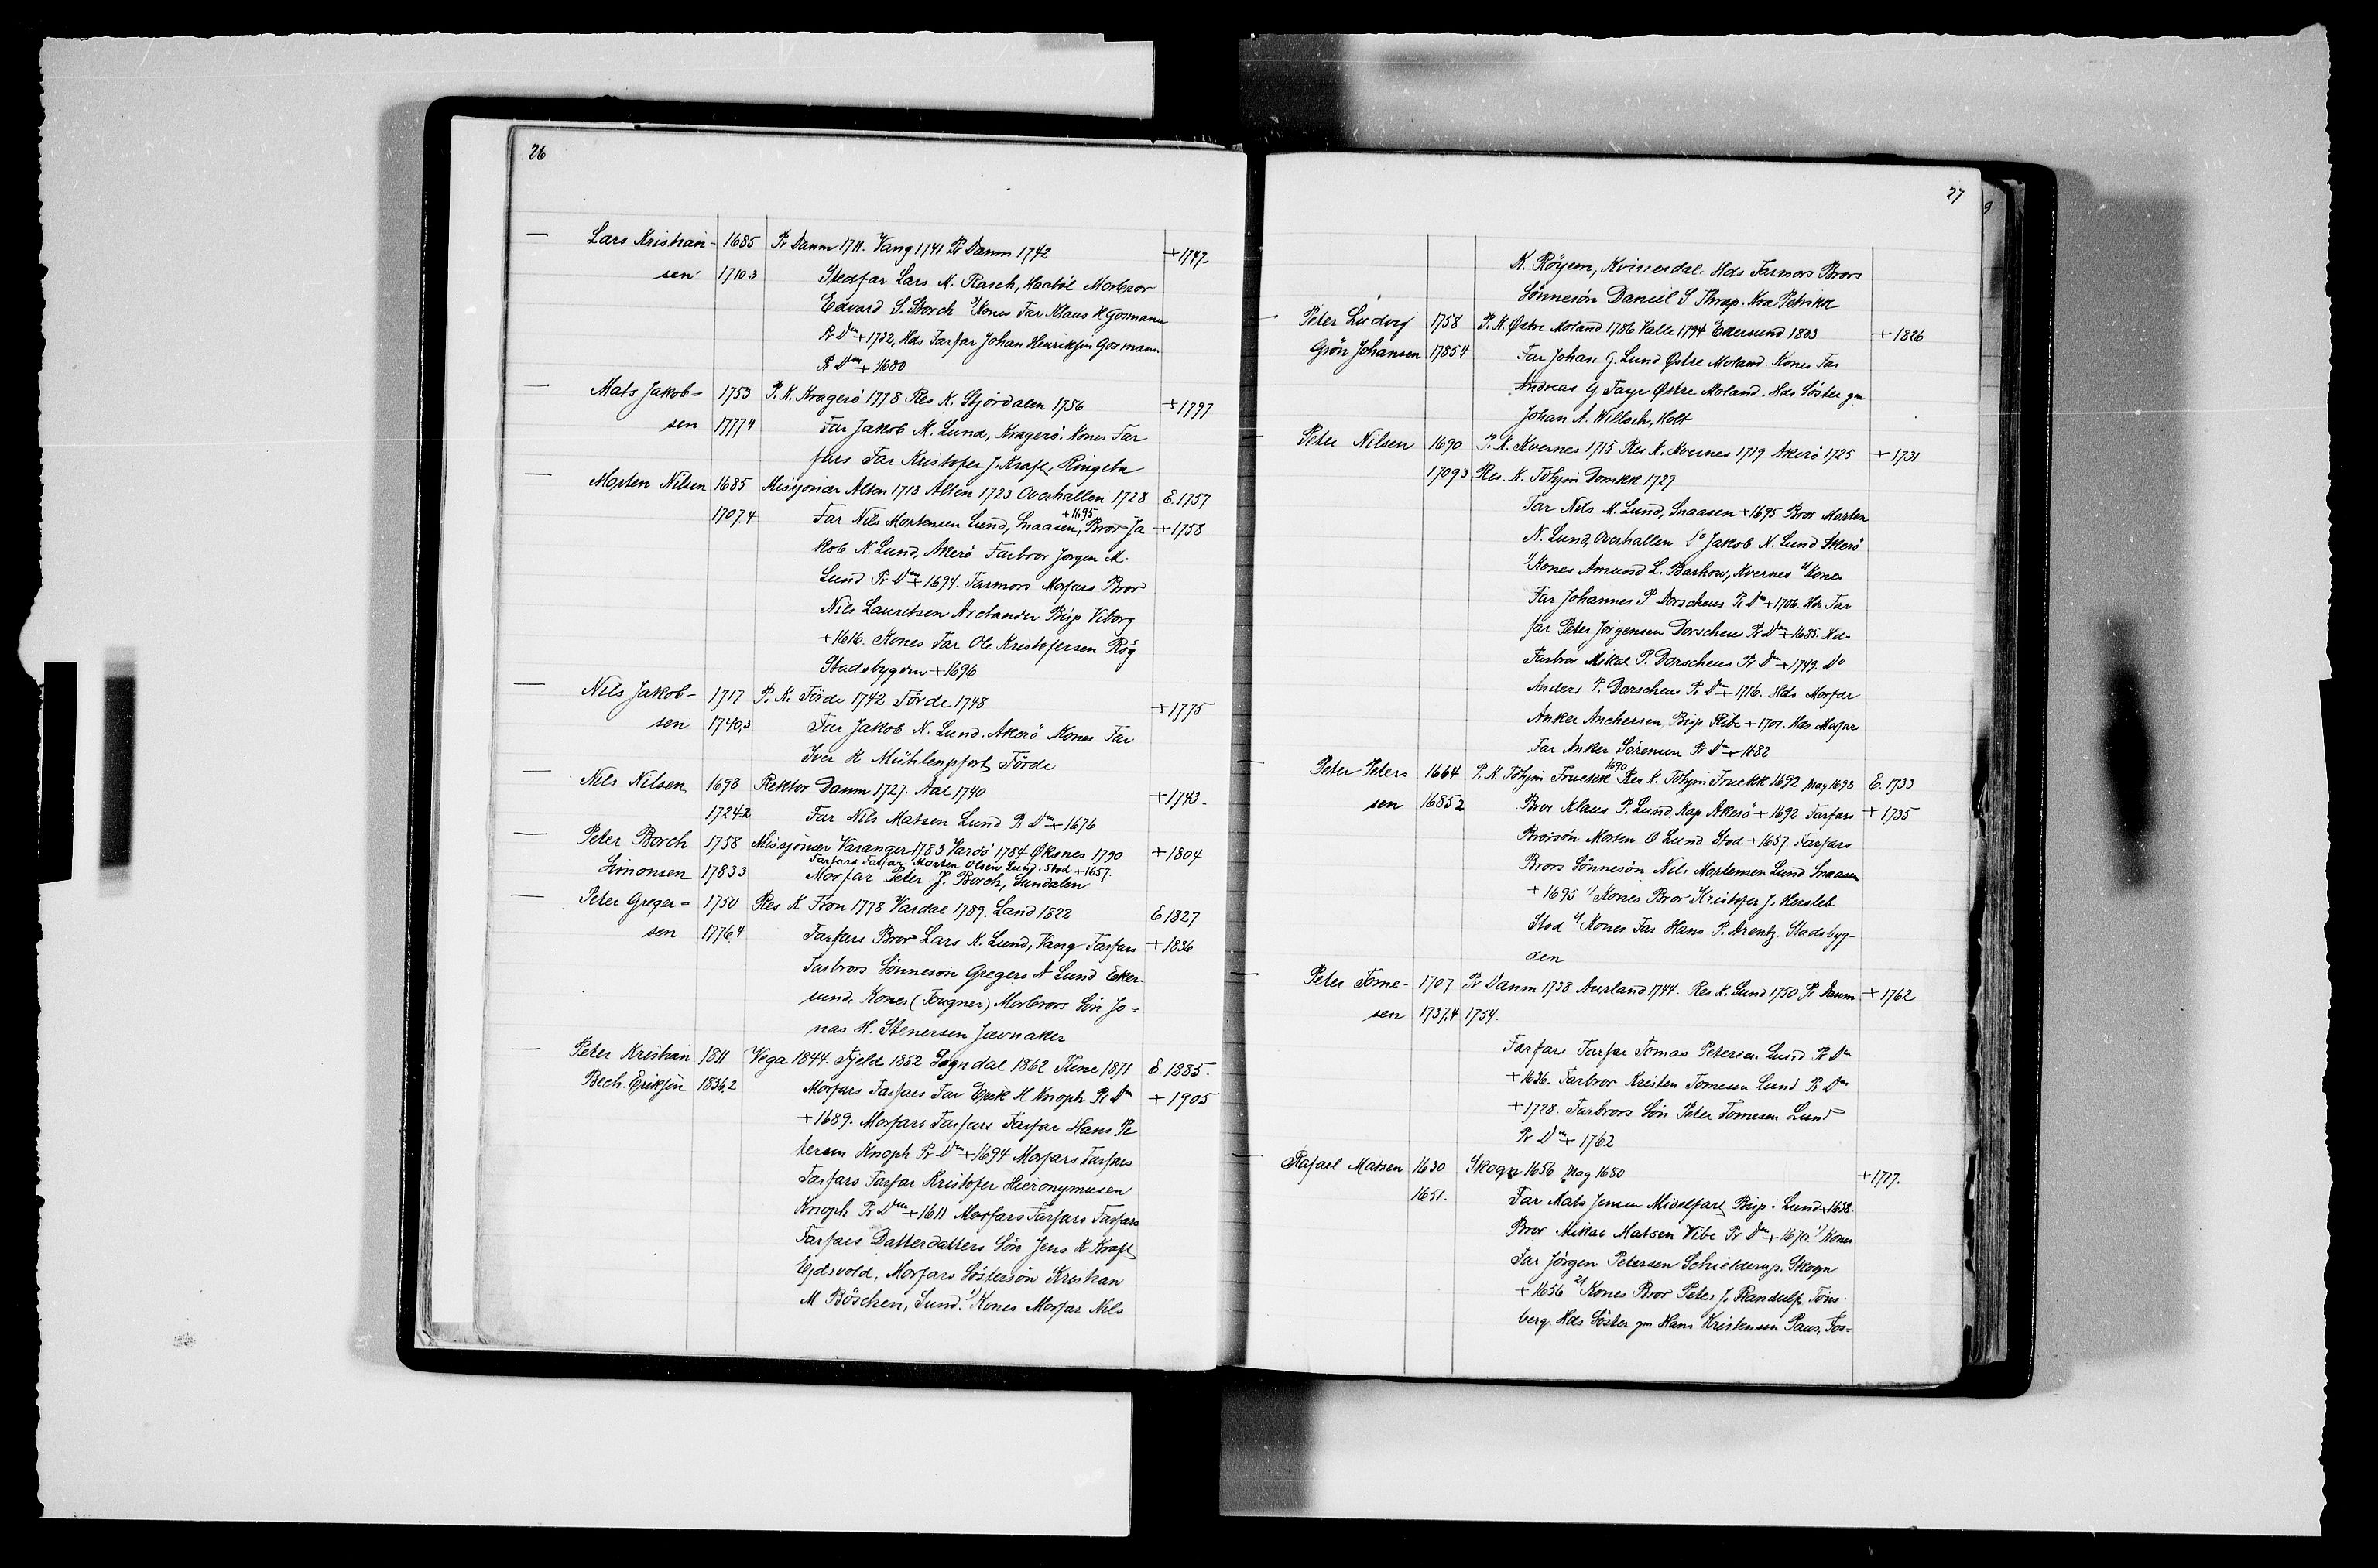 26
— Lars Kristian- 1685 Pr Danm 1711. Vang 1741 Pr Danm 1742 +1747.
sen 1710.3 Stedfar Lars M. Rasch, Haabøl Morbror
Edvard S. Storch 2/ Kones Far Klaus H Gosmann
Pr Dm + 1732, Hds Farfar Johan Henriksen Gosmann
Pr Dm + 1680
— Mats Jakob- 1753 P. K. Kragerö 1778 Res K. Stjördalen 1756 +1797
sen 1777.4 Far Jakob M. Lund, Kragerö. Kones Far
fars Far Kristofer J. Kraft, Ringebu
— Morten Nilsen 1685 Misjonær Alten 1718 Alten 1723 Overhallen 1728 E. 1757
1707.4 Far Nils Mortensen Lund, Snaasen, +1695 Bror Ja- +1758
kob N. Lund, Akerö Farbror Jørgen M.
Lund Pr Dm + 1694. Farmors Morfars Bror
Nils Lauritsen Arctander Bisp Viborg
+ 1616. Kones Far Ole Kristofersen Røg
Stadsbygden + 1696
— Nils Jakob- 1717 P. K. Förde 1742 Förde 1748 +1775
sen 1740.3 Far Jakob N. Lund. Akerö Kones Far
Iver H Mühlenpfort, Förde
— Nils Nilsen 1698 Rektor Danm 1727. Aal 1740 +1743.
1724.2 Far Nils Matsen Lund Pr Dm + 1676
— Peter Borch 1758 Misjonær Varanger 1783 Vardö 1784 Øksnes 1790 +1804
Farfars Farfar Morten Olsen Lund. Stod +1657.
Simonsen 1783.3 Morfar Peter J. Borch, Sundalen
— Peter Greger- 1750 Res K Fron 1778 Vardal 1789. Land 1822 E 1827
sen 1776.4 Farfars Bror Lars K. Lund, Vang Farfars +1836
Farbrors Sönnesön Gregers A Lund Eker-
sund. Kones (Fougner) Morbrors Sön Jo-
nas H. Stenersen Jævnaker
— Peter Kristian 1811 Vega 1844. Fjeld 1852 Sogndal 1862 Tune 1871 E. 1885.
Bech. Eriksen 1836.2 Morfars Farfars Far Erik H Knoph Pr Dm +1905
+ 1689. Morfars Farfars Farfar Hans Pe
tersen Knoph Pr Dm + 1694 Morfars Farfars
Farfars Farfar Kristofer Hieronymusen
Knoph Pr Dm + 1611 Morfars Farfars Farfars
Farfars Datterdatters Sön Jens K Kraft
Ejdsvold, Morfars Söstersön Kristian
M Böschen, Sund. 1/ Kones Morfar Nils
27
K. Röyem, Kvinesdal. Hds Farmors Brors
Sönnesön Daniel S Thrap. Kra Petrikk
— Peter Ludvig 1758 P. K. Østre Moland 1786 Valle 1794 Ekersund 1803 +1826
Grön Johansen 1785.4 Far Johan G. Lund Østre Moland. Kones Far
Andreas G Faye Østre Moland. Hds Söster gm
Johan A. Willoch, Holt
— Peter Nilsen 1690 P. K. Kvernes 1715 Res K. Kvernes 1719 Akerö 1725 +1731
1709.3 Res. K. Tohjm Domkk 1729
Far Nils M. Lund, Snaasen + 1695 Bror Morten
N. Lund, Overhallen Do Jakob N. Lund Akerö
1/ Kones Amund L. Barhow, Kvernes 2/ Kones
Far Johannes P Dorscheus Pr Dm + 1706. Hds Far
far Peter Jörgensen Dorscheus Pr Dm + 1685. Hds
Farbror Mikal P. Dorscheus Pr Dm + 1749. Do
Anders P. Dorscheus Pr Dm + 1716. Hds Morfar
Anker Anchersen, Bisp Ribe + 1701. Hds Morfars
Far Anker Sörensen Pr Dm + 1682
Peter Peter- 1664 P. K. Tohjm Fruekk 1690 Res K. Tohjm Fruekk 1692 Mag 1693 E. 1733
sen 1685.2 Bror Klaus P. Lund, Kap Akerö + 1692 Farfars +1735
Brorsön Morten O Lund Stod + 1657. Farfars
Brors Sönnesön Nils Mortensen Lund Snaasen
+ 1695 1/ Kones Bror Kristofer J. Hersleb
Stod 2/ Kones Far Hans P. Arentz. Stadsbyg-
den
— Peter Tome- 1707 Pr Danm 1738 Aurland 1744. Res K. Lund 1750 Pr Danm +1762
sen 1737.4 1754.
Farfars Farfar Tomas Petersen Lund Pr Dm
+ 1636. Farbror Kristen Tomesen Lund Pr Dm
+ 1728. Farbrors Sön Peter Tomesen Lund
Pr Dm + 1762
— Rafael Matsen 1630 Skogn 1656 Mag 1680 +1717.
1651. Far Mats Jensen Middelfart, Bisp i Lund + 1638
Bror Mikal Matsen Vibe Pr Dm + 1670. 1/ Kones
Far Jörgen Petersen Schielderup. Skogn
+ 1656 2/ Kones Bror Peter J. Randulf, Töns-
berg. Hds Söster gm Hans Kristensen Paus, Fos-